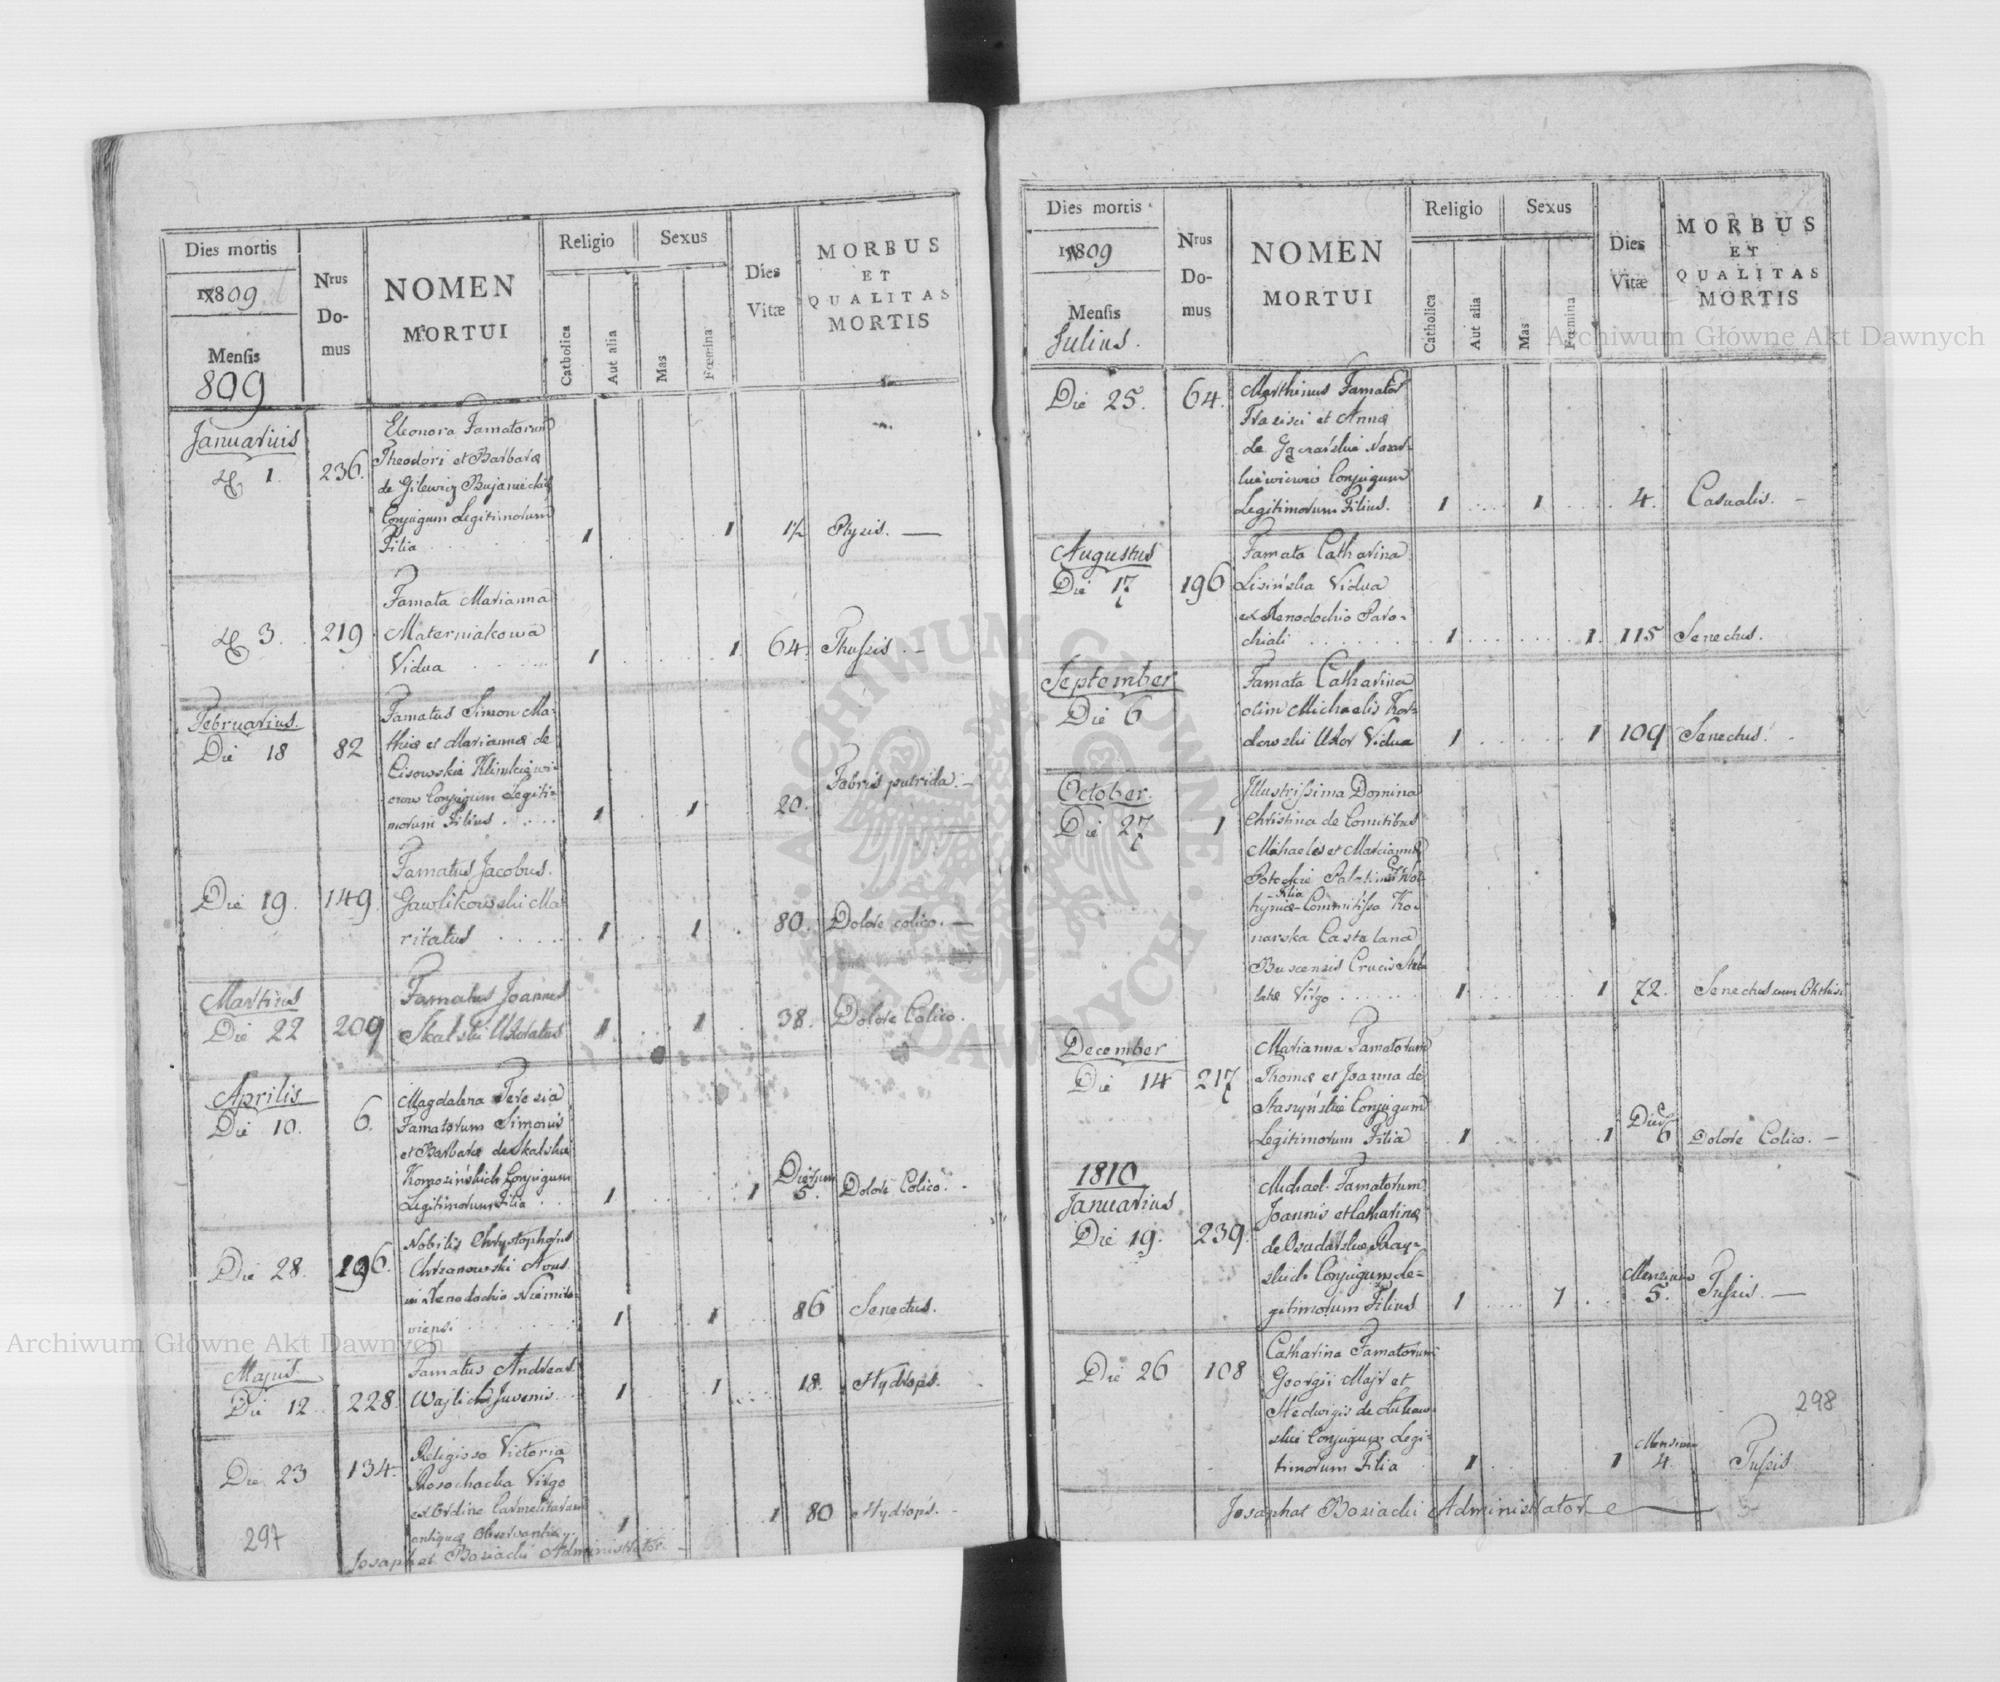 Dies mortis
1809
Mensis
809
Nrus
Do-
mus
NOMEN
MORTUI
Religio
Catholica
Aut alia
Sexus
Mas
Fœmina
Dies
Vitæ
MORBUS
ET
QUALITAS
MORTIS
Januarius
1. 236. Eleonora Famatorum
Theodori et Barbaræ
de Gilewicz Bujanieckich
Conjugum Legitimorum
Filia 1 1 1/2 Ptyzis.
3. 219 Famata Marianna
Materniakowa
Vidua 1 1 64. Thussis.
Februarius.
Die 18 82 Famatus Simon Ma-
thiæ et Mariannæ de
Lisowskie Klimkiewi-
czow Conjugum Legiti-
morum Filius 1 1 20. Febris putrida.
Die 19. 149 Famatus Jacobus.
Gawlikowski Ma-
ritatus 1 1 80. Dolore colico.
Martius
Die 22 209 Famatus Joannes
Skalski Uxoratus 1 1 38. Dolore Colico.
Aprilis
Die 10. 6. Magdalena Terezia
Famatorum Simonis
et Barbaræ de Skalskie
Conjugum
Legitimorum Filia 1 1 Dierum
5. Dolore Colico.
Die 28. 196. Nobilis Chrystophorus
Chrzanowski
Xenodochio Niemiro-
viensi 1 1 86 Senectus.
Majus
Die 12 228. Famatus Andreas
Wajlich Juvenis 1 1 18. Hydrops.
Die 23 134. Religiosa Victoria
Rosochacka Virgo
ex Ordine Carmelitarum
antiquæ Observantiæ 1 1 80 Hydrops.
297
Josaphat Boziacki Administrator
Dies mortis
1809
Mensis
Julius.
Nrus
Do-
mus
NOMEN
MORTUI
Religio
Catholica
Aut alia
Sexus
Mas
Fœmina
Dies
Vitæ
MORBUS
ET
QUALITAS
MORTIS
Die 25. 64. Marthinus Famator
et Annæ
de
Conjugum
Legitimorum Filius. 1 1 4. Casualis.
Augustus
Die 17 196 Famata Catharina
Lisińska Vidua
ex Xenodochio Paro-
chiali 1 1. 115 Senectus.
September
Die 6 Famata Catharina
olim Michaelis Koz-
lowski Uxor Vidua 1 1 109 Senectus.
October.
Die 27 1 Illustrissima Domina
Christina de Comitibus
Michaeles et Mariannæ
Potockie Palatines Wol-
Filia
hyniæ Commitissa Ko-
narska Castelana
Buscensis Crucis Stel-
latæ Virgo 1 1 72. Senectus cum
December
Die 14 217 Marianna Famatorum
Thomæ et Joanna de
Staszyńskie Conjugum
Legitimorum Filia 1 1 Dies
6 Dolore Colico.
1810
Januarius
Die 19. 239. Michael Famatorum
Joannis et Catharinæ
de
Conjugum Le-
gitimorum Filius 1 1 Mensium
5. Tussis.
Die 26 108 Catharina Famatorum
Georgii Majr et
Hedwigis de
Conjugum Legi-
timorum Filia 1 1 Mensium
4. Tussis
298
Josaphat Boziacki Administrator
Archiwum Główne Akt Dawnych
Archiwum Główne Akt Dawnych
ARCHIWUM GŁÓWNE AKT DAWNYCH